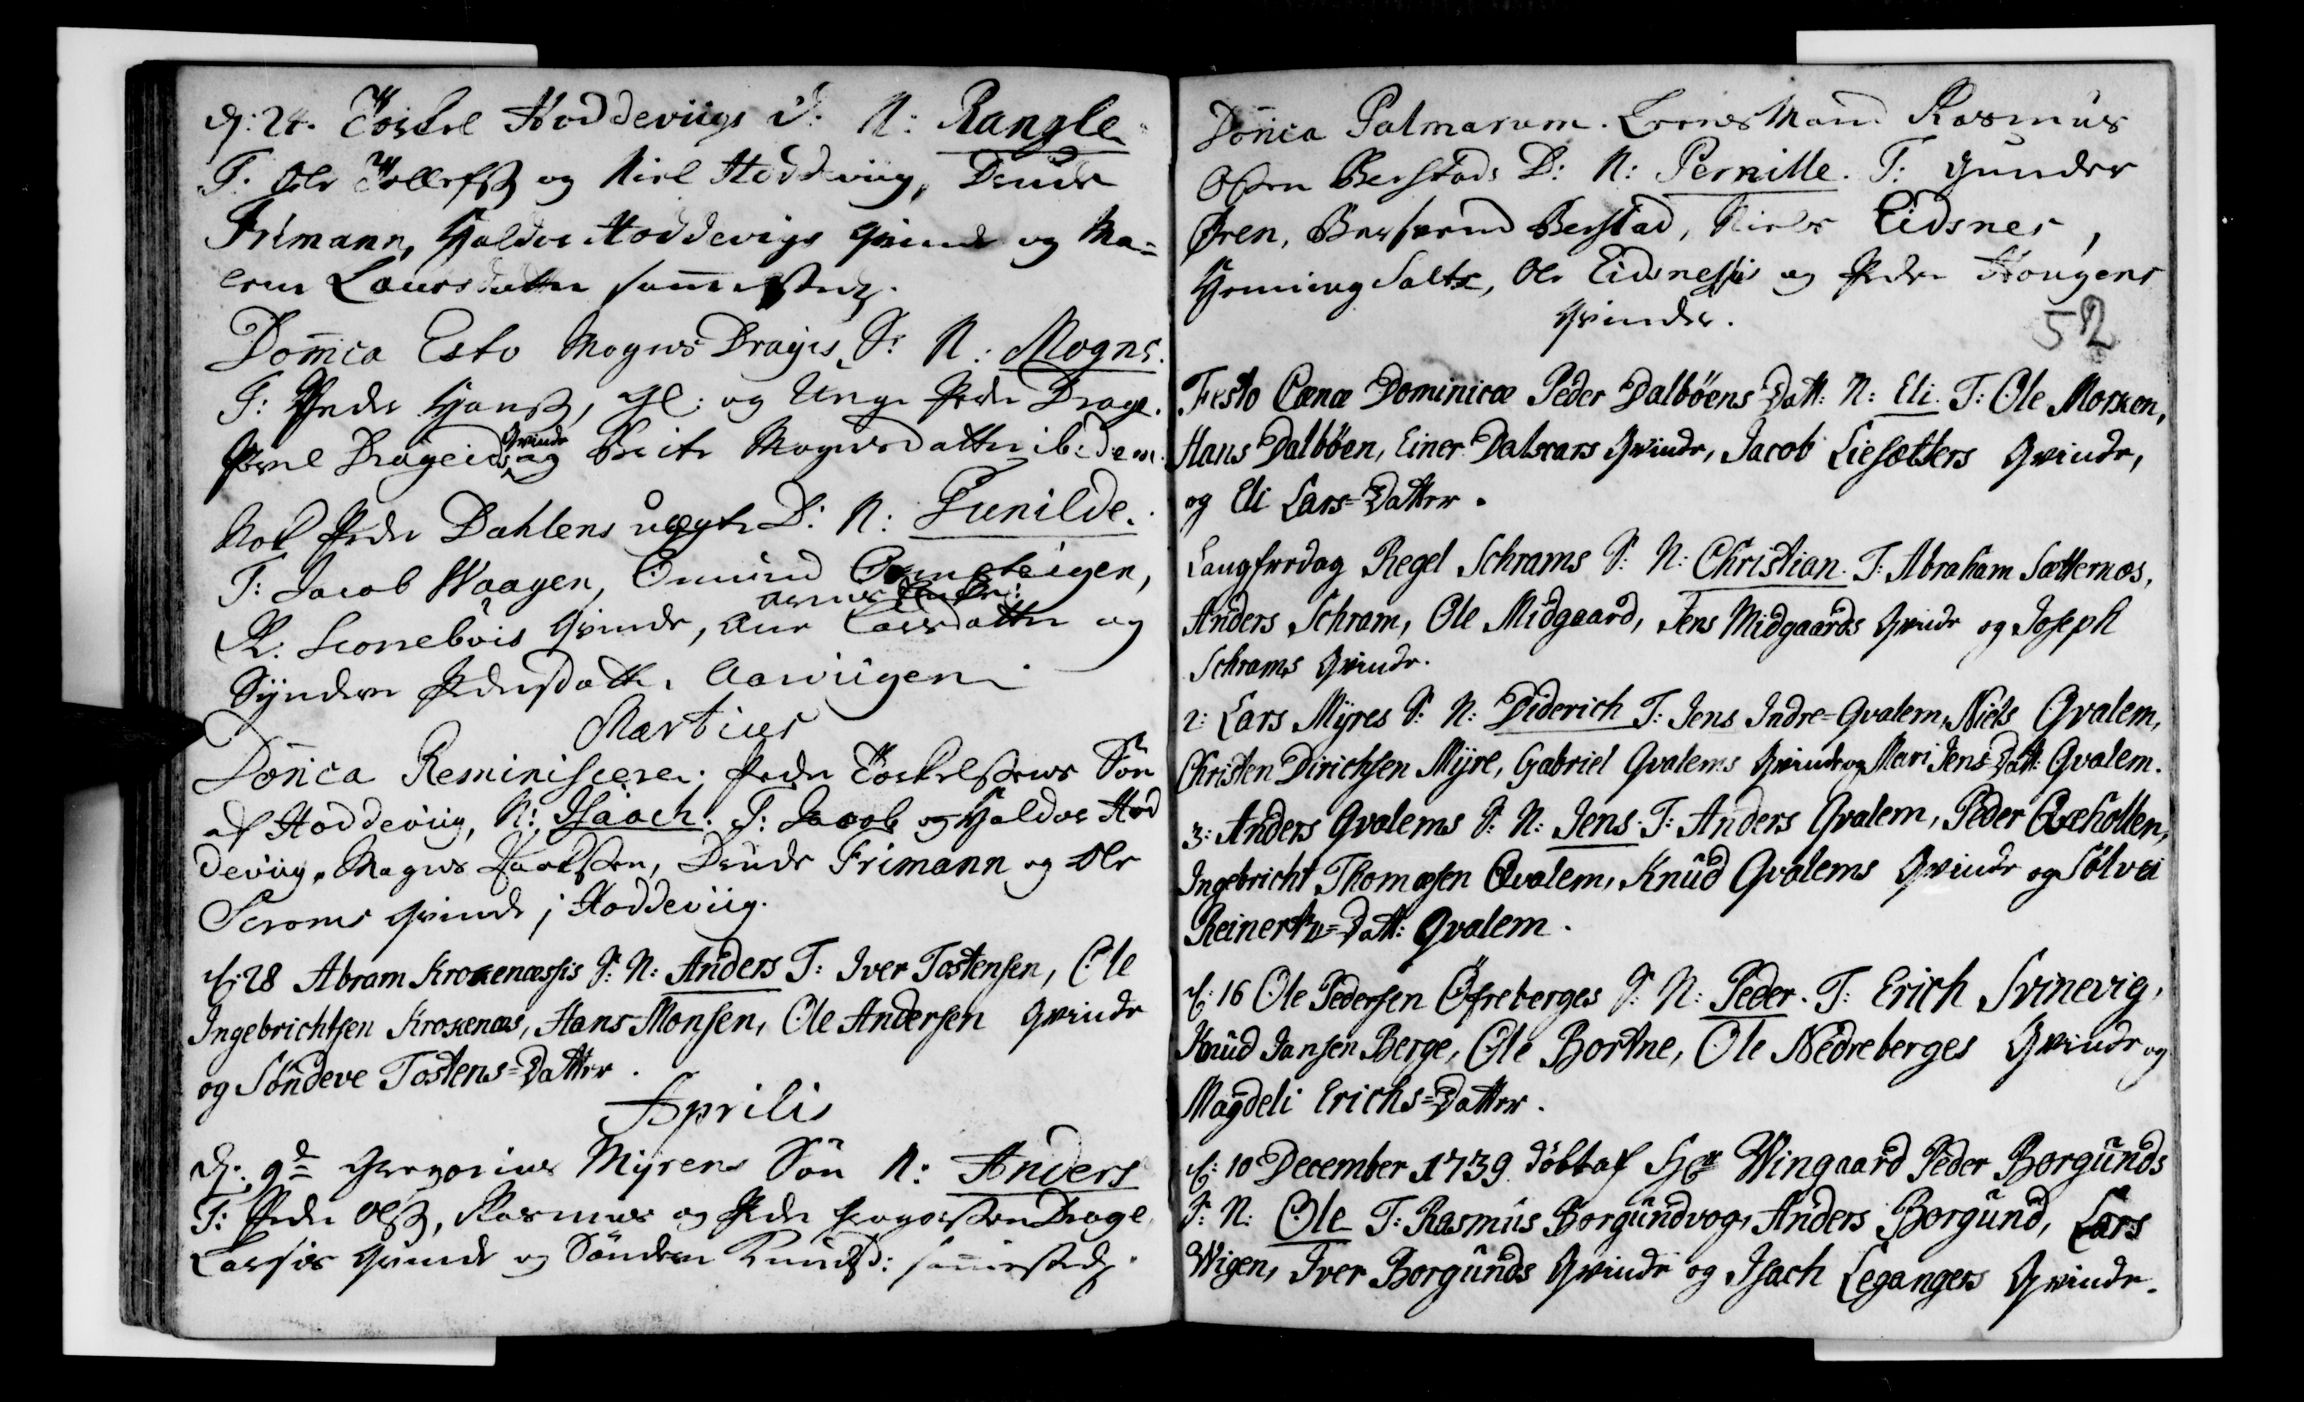 d: 24. Joskel Hoddeviigs D: N: Rangle.
T: Ole Jellefsß og Niel Hoddeviig, Knud
Frimann, Haldor Hoddevigs Qvinde og Ma=
Laursdatter sammesteds.
Domica Esto Mogns Drages S: N: Mogns.
T: Peder Hansß, gl: og Unge Peder Drage.
Drageids Qvinde og Brite Mognsdatter ibidem.
Nok Peder Dahlens uægte D: N: Gunilde.
T: Jacob Waagen, Omund
R: Qvinde, Ane Larsdatter og
Synneve Pedersdatt. Aarviigen
Martius
Domica Reminiscere. Peder Joskelssens Sön
af Hoddeviig, N: Isaach. T: Jacob og Haldor Hod
deviig, Mogns Jacobssen, Knud Frimann og Ole
Scroms Qvinde i Hoddeviig.
d: 28 Abram Krokenæssis S: N: Anders T: Iver Tostensen, Ole
Ingebrichtsen Krokenæs, Hans Monsen, Ole Andersen Qvinde
og Söndeve Tostens=Datter.
Aprilis
d: 9de Gregorius Myrens Sön N: Anders
T: Peder Olsß, Rasmus og Peder Drage
Qvinde og Sönneve Knudsd: sammesteds.
Domica Palmarum. Lensmand Rasmus
Olsen Berstads D: N: Pernille. T: Gunder
Øren, Berstad, Niels Eidsnes,
Henning Salte, Ole Eidsnessis og Peder Hougens
Qvinder.
52
Festo Cænæ Dominicæ Peder Dalböens Datt: N: Eli. T: Ole Morken,
Hans Dalböen, Einer Dalscars Qvinde, Jacob Liesætters Qvinde,
og Eli Lars=Datter.
Langfredag Regel Schrams S: N: Christian. T: Abraham Sætternæs,
Anders Schram, Ole Midgaard, Jens Midgaards Qvinde og Joseph
Schrams Qvinde.
2: Lars Myres S: N: Diderich T: Jens Indre=Qvalem, Niels Qvalem,
Christen Dirichsen Myre, Gabriel Qvalems Qvinde og Mari Jens=Datt: Qvalem.
3: Anders Qvalems S: N: Jens. T: Anders Qvalem, Peder Qvæholten,
Ingebricht Thomæsen Qvalem, Knud Qvalems Qvinde og Sölvei
Reinerts=Datt: Qvalem.
d: 16 Ole Pedersen Öfreberges S: N: Peder. T: Erich Svinevig,
Knud Jansen Berge, Ole Bortne, Ole Nedreberges Qvinde og
Magdeli Erichs=Datter.
d: 10 December 1739 döbt af Hr Wingaard Peder Borgunds
S: N: Ole T: Rasmus Borgundvog, Anders Borgund, Lars
Wigen, Iver Borgunds Qvinde og Isach Legangers Qvinde.